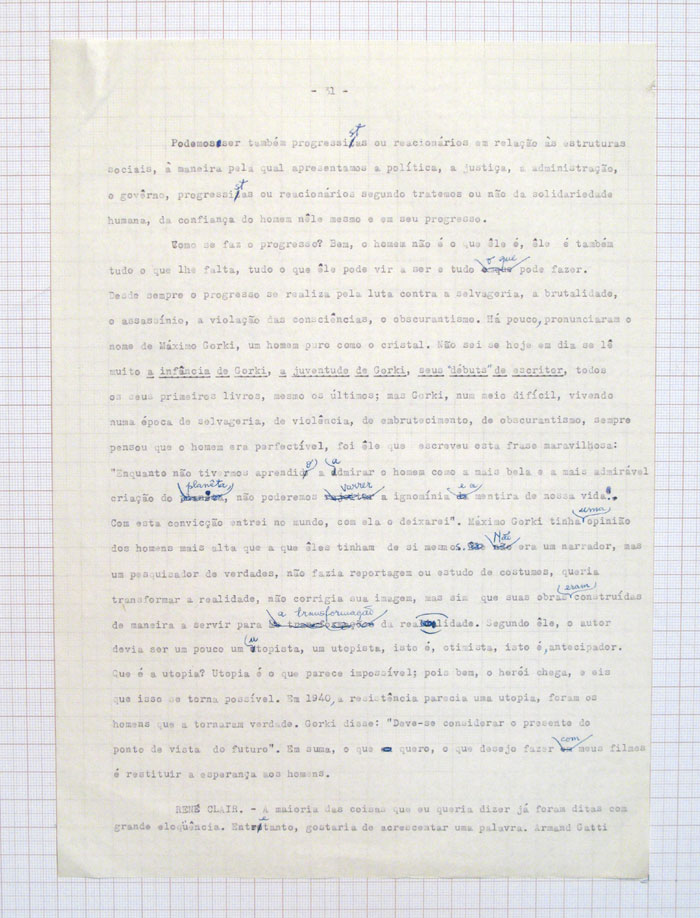 - 31 -
Podemos ser também progressistas ou reacionários em relação às estruturas
sociais, à maneira pela qual apresentamos a política, a justiça, a administração,
o govêrno, progressistas ou reacionários segundo tratemos ou não da solidariedade
humana, da confiança do homem nêle mesmo e em seu progresso.
Como se faz o progresso? Bem, o homem não é o que êle é, êle é também
tudo o que lhe falta, tudo o que êle pode vir a ser e tudo o que pode fazer.
Desde sempre o progresso se realiza pela luta contra a selvageria, a brutalidade,
o assassínio, a violação das consciências, o obscurantismo. Há pouco, pronunciaram o
nome de Máximo Gorki, um homem puro como o cristal. Não sei se hoje em dia se lê
muito a infância de Gorki, a juventude de Gorki, seus "débuts" de escritor, todos
os seus primeiros livros, mesmo os últimos; mas Gorki, num meio difícil, vivendo
numa época de selvageria, de violência, de embrutecimento, de obscurantismo, sempre
pensou que o homem era perfectível, foi êle que escreveu esta frase maravilhosa:
"Enquanto não tivermos aprendido a admirar o homem como a mais bela e a mais admirável
criação do planêta, não poderemos varrer a ignomínia e a mentira de nossa vida.
Com esta convicção entrei no mundo, com ela o deixarei". Máximo Gorki tinha uma opinião
dos homens mais alta que a que êles tinham de si mesmos. Não era um narrador, mas
um pesquisador de verdades, não fazia reportagem ou estudo de costumes, queria
transformar a realidade, não corrigia sua imagem, mas sim que suas obras eram construídas
de maneira a servir para a transformação da realidade. Segundo êle, o autor
devia ser um pouco um utopista, um utopista, isto é, otimista, isto é, antecipador.
Que é a utopia? Utopia é o que parece impossível; pois bem, o herói chega, e eis
que isso se torna possível. Em 1940, a resistência parecia uma utopia, foram os
homens que a tornaram verdade. Gorki disse: "Deve-se considerar o presente do
ponto de vista do futuro". Em suma, o que quero, o que desejo fazer com meus filmes
é restituir a esperança aos homens.
RENÉ CLAIR. - A maioria das coisas que eu queria dizer já foram ditas com
grande eloqüência. Entretanto, gostaria de acrescentar uma palavra. Armand Gatti